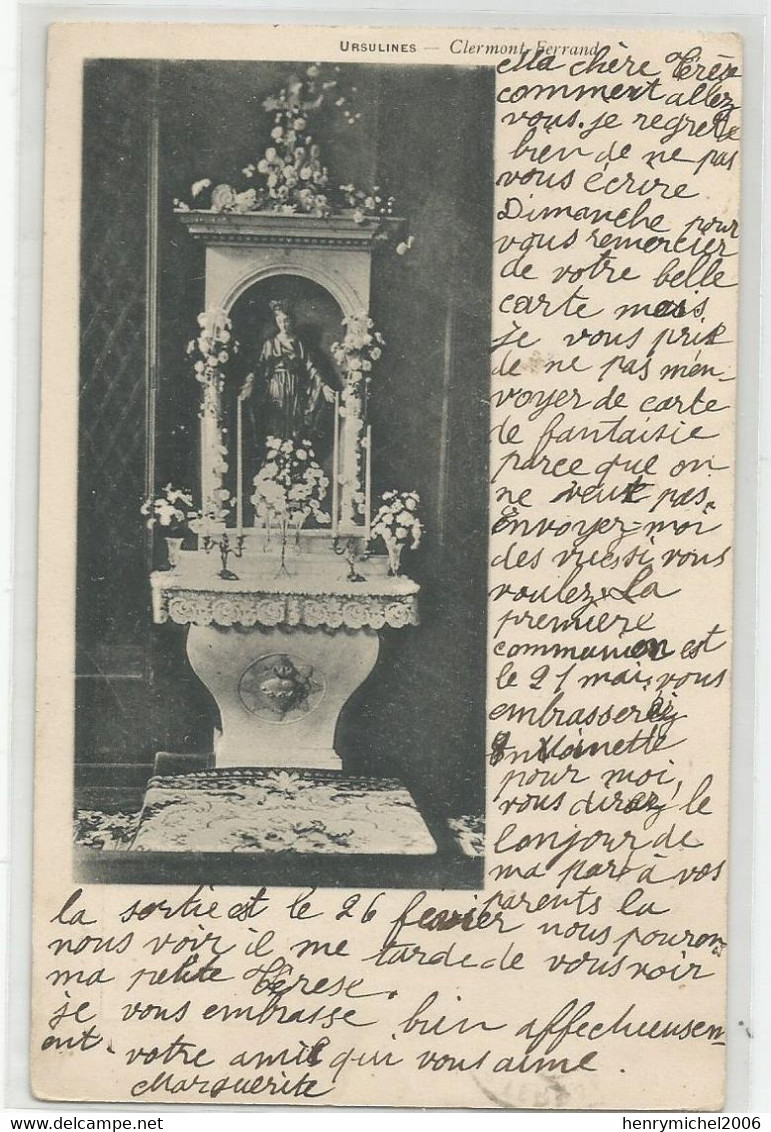 URSULINES — Clermont-Ferrand
Ma chère Térèse
comment allez
vous. je regrete
bien de ne pas
vous écrire
Dimanche pour
vous remercier
de votre belle
carte mais
je vous prie
de ne pas m'en-
voyer de carte
de fantaisie
parce que on
ne veut pas.
Envoyez-moi
des vues si vous
voulez. La
première
communion est
le 21 mai, vous
embrasserez
Antoinette
pour moi,
vous direz le
bonjour de
ma part à vos
parents la
la sortie est le 26 fevrier nous pourons
nous voir il me tarde de vous voir
ma petite Térese.
je vous embrasse bien affectueusem-
ent.
votre amie qui vous aime.
Marguerite
henrymichel2006